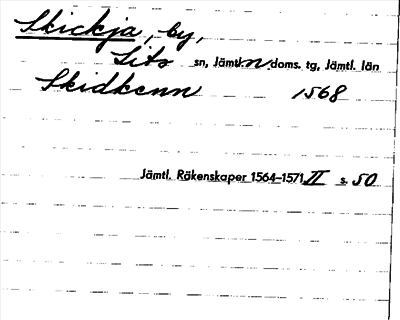 Skickja, by,
Lits sn, Jämtl. n. doms. tg, Jämtl. län
Skidkenn 1568
Jämtl. Räkenskaper 1564–1571, II s. 50